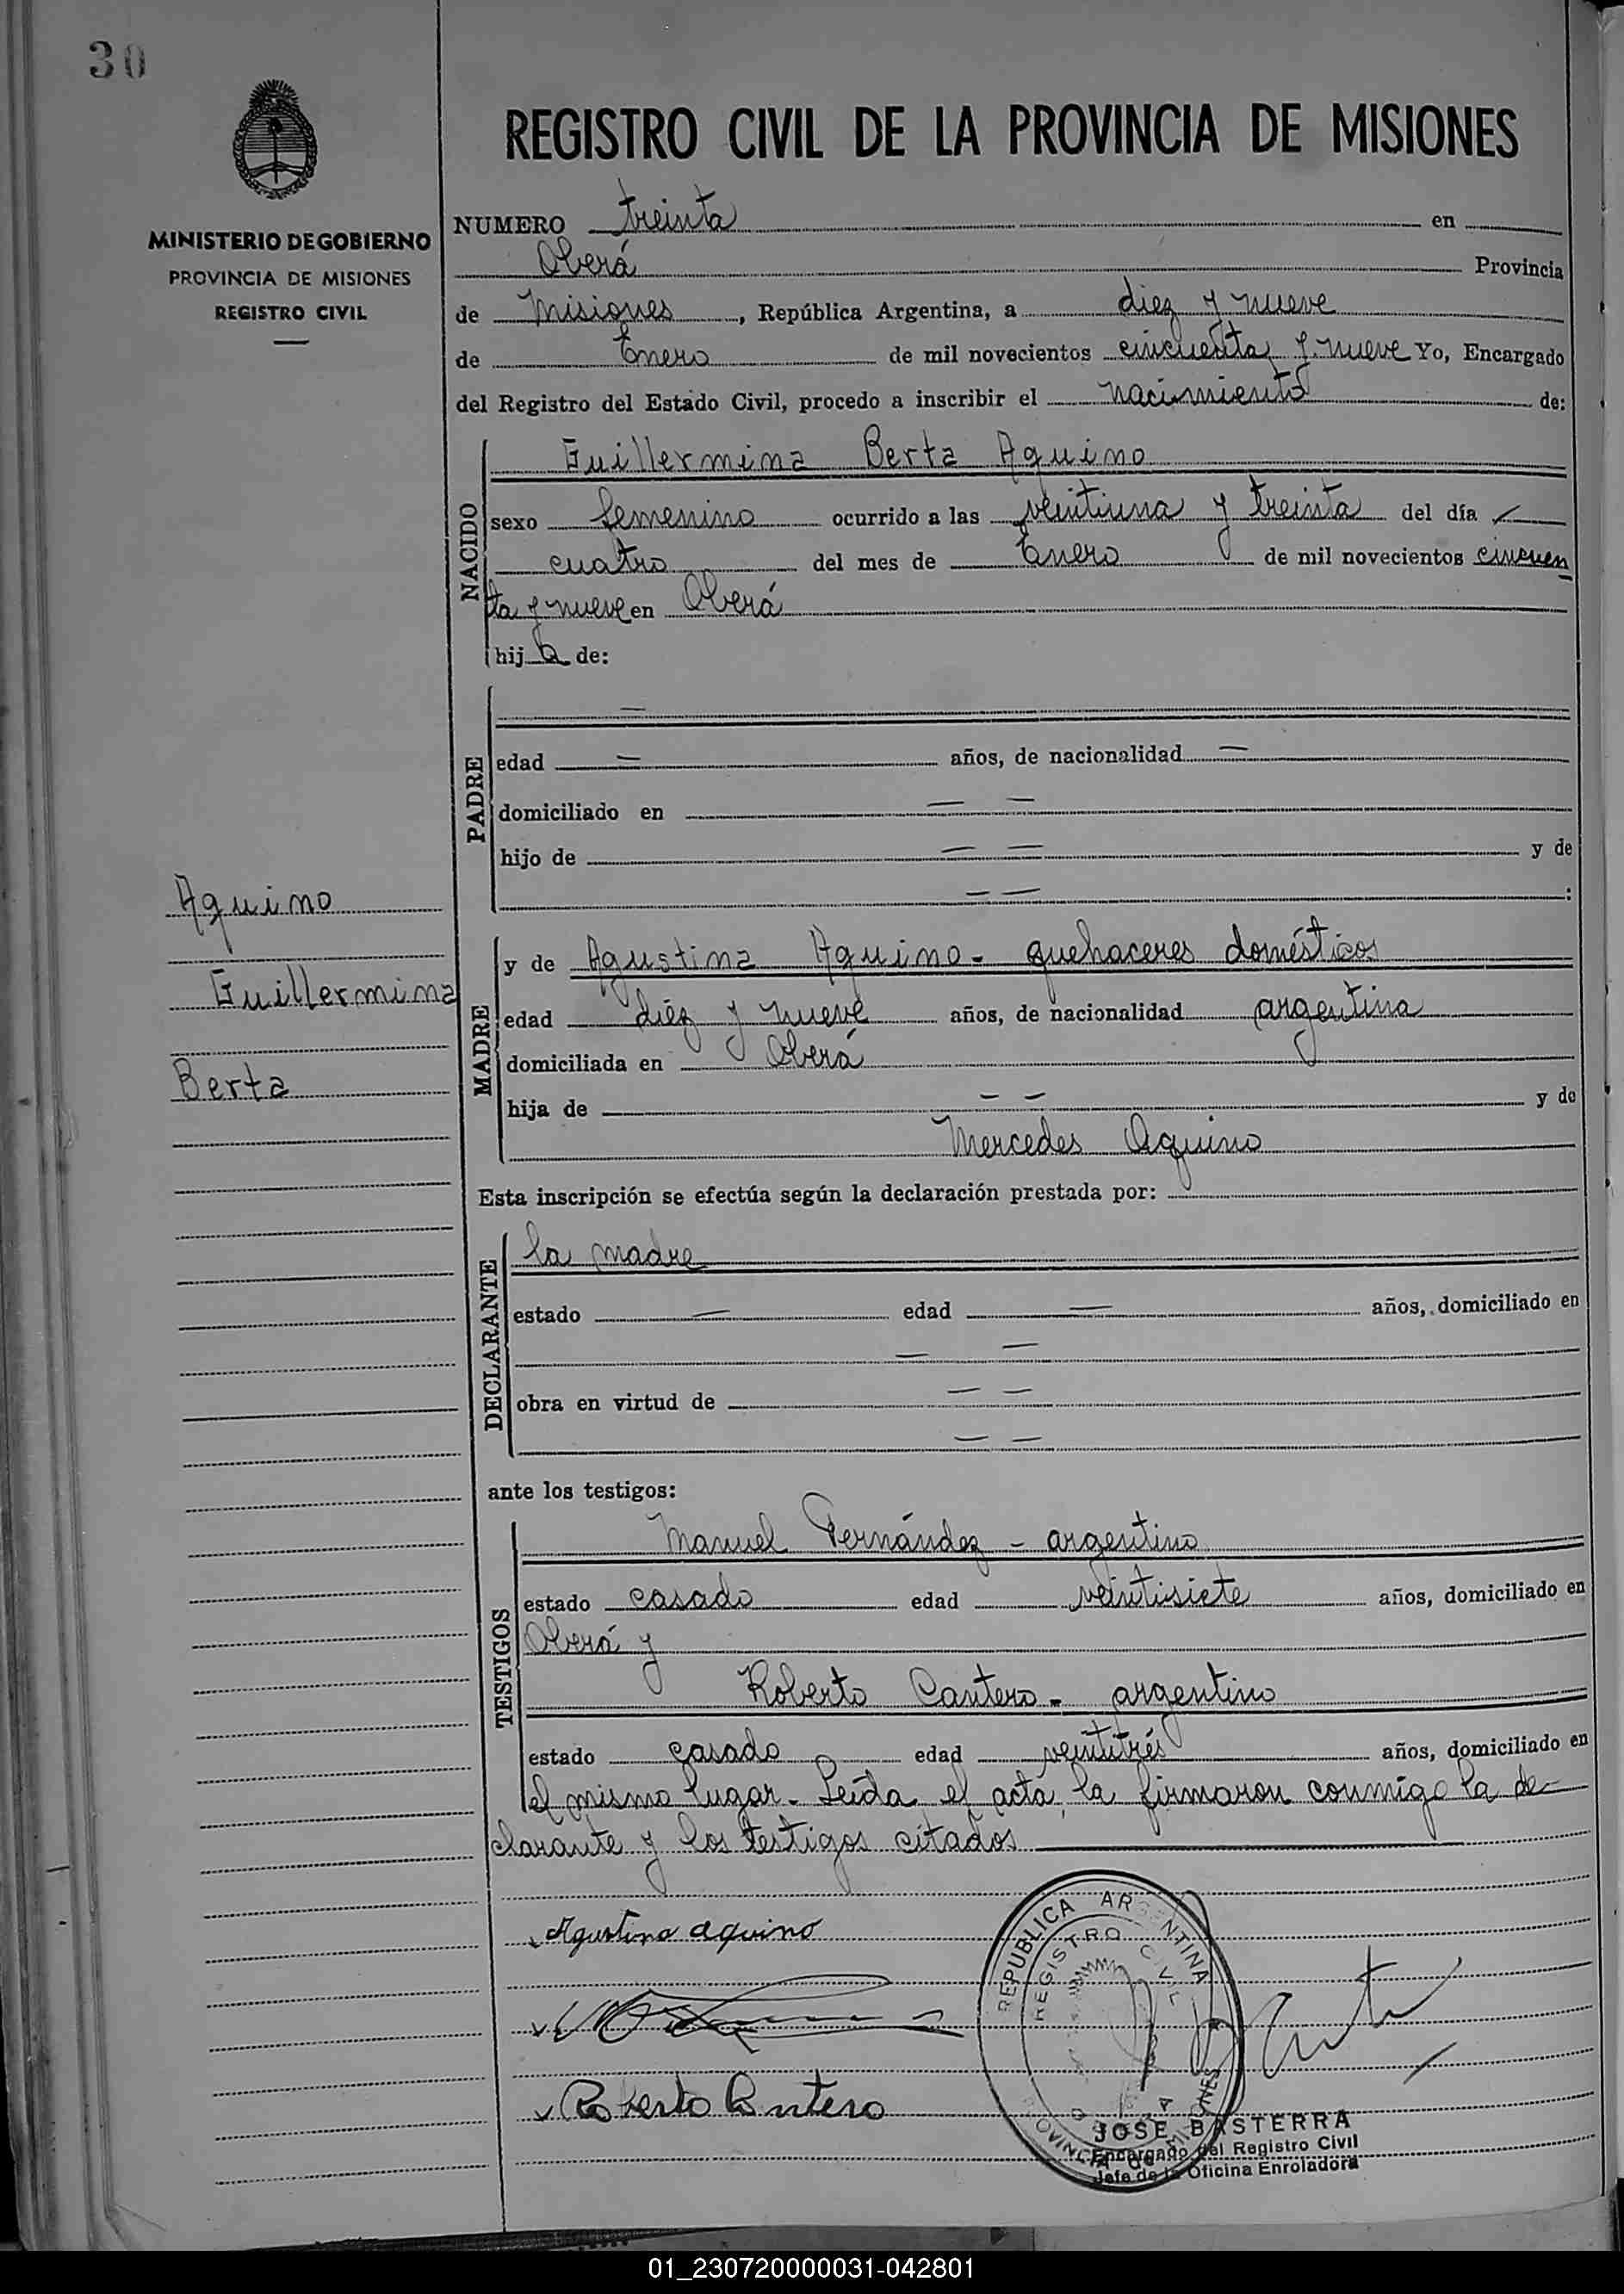 30
MINISTERIO DE GOBIERNO
PROVINCIA DE MISIONES
REGISTRO CIVIL
REGISTRO CIVIL DE LA PROVINCIA DE MISIONES
NUMERO treinta en
Oberá Provincia
de Misiones, República Argentina, a diez y nueve
de Enero de mil novecientos cincuenta y nueve Yo, Encargado
del Registro del Estado Civil, procedo a inscribir el nacimiento de:
NACIDO
Guillermina Berta Aquino
sexo femenino ocurrido a las veintiuna y treinta del día
cuatro del mes de Enero de mil novecientos cincuen
ta y nueve en Oberá
hija de:
PADRE
—
edad — años, de nacionalidad —
domiciliado en — —
hijo de — — y de
— — :
Aquino
Guillermina
Berta
MADRE
y de Agustina Aquino - quehaceres domésticos
edad diéz y nueve años, de nacionalidad argentina
domiciliada en Oberá
hija de — — y de
Mercedes Aquino
Esta inscripción se efectúa según la declaración prestada por:
DECLARANTE
la madre
estado — edad — años, domiciliado en
— —
obra en virtud de — —
— —
ante los testigos:
TESTIGOS
Manuel Fernández - argentino
estado casado edad veintisiete años, domiciliado en
Oberá y
Roberto Cantero - argentino
estado casado edad veintitrés años, domiciliado en
el mismo lugar. Leída el acta, la firmaron conmigo la de-
clarante y los testigos citados
Agustina aquino
Roberto Cantero
REPUBLICA ARGENTINA
REGISTRO CIVIL
PROVINCIA de MISIONES
JOSE BASTERRA
Encargado del Registro Civil
Jefe de la Oficina Enroladora
01_230720000031-042801